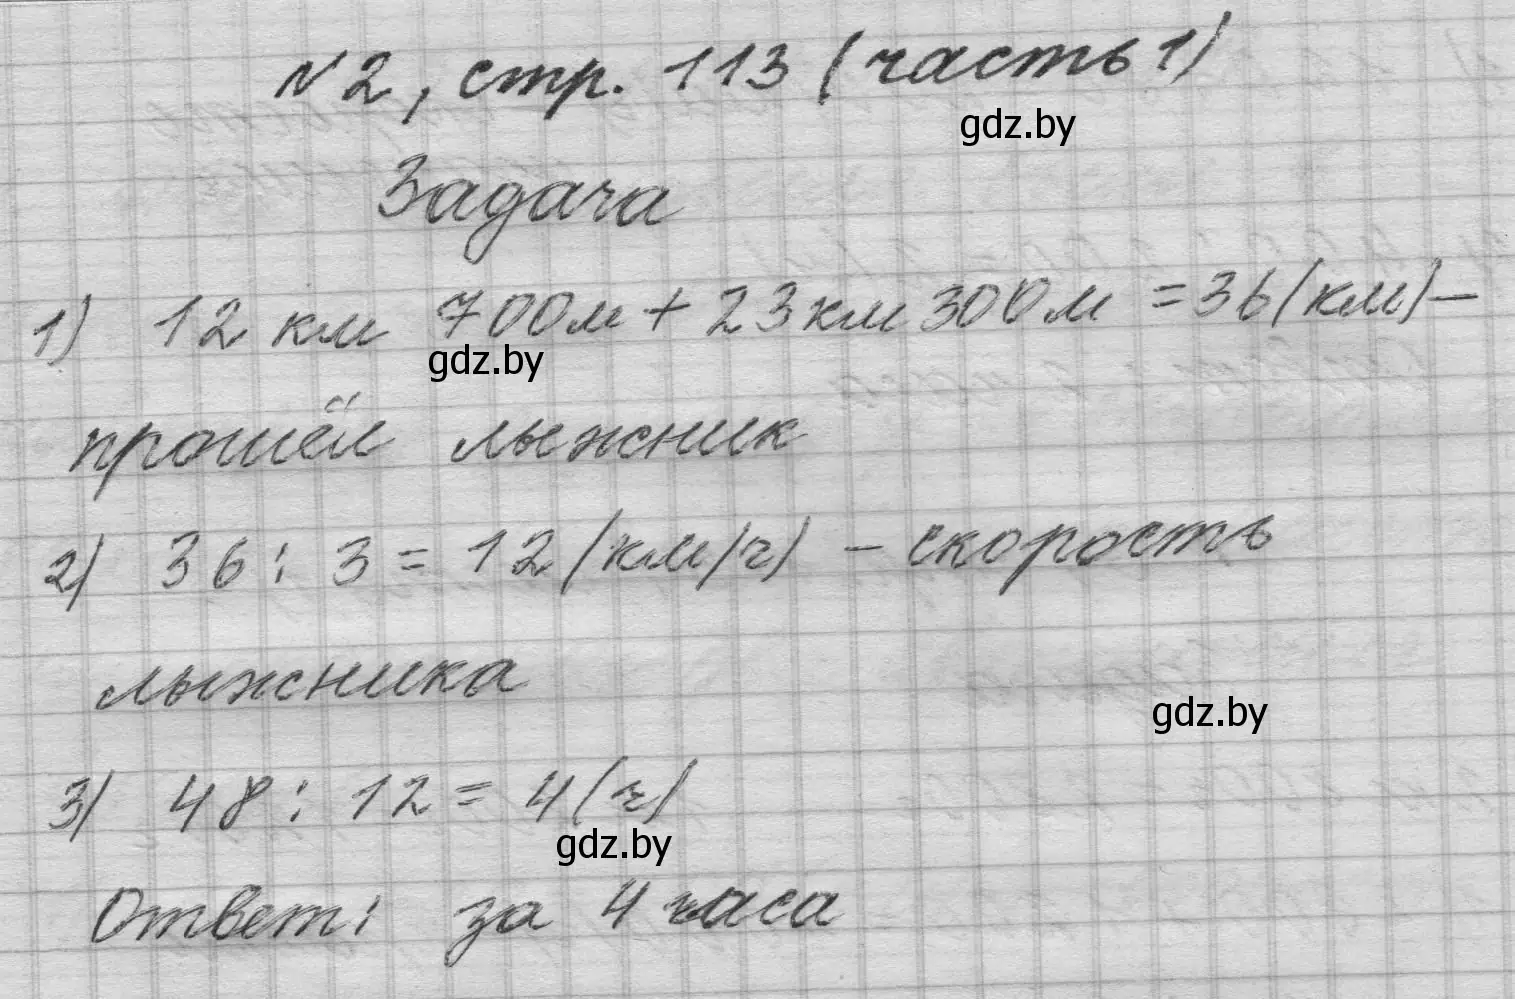 №2, стр. 113 (часть 1)
gdz.by
Задача
1) 12 км 700м + 23км 300м = 36(км) –
gdz.by
прошёл лыжник
2) 36 : 3 = 12 (км/ч) – скорость
лыжника
gdz.by
3) 48 : 12 = 4 (ч)
gdz.by
Ответ: за 4 часа